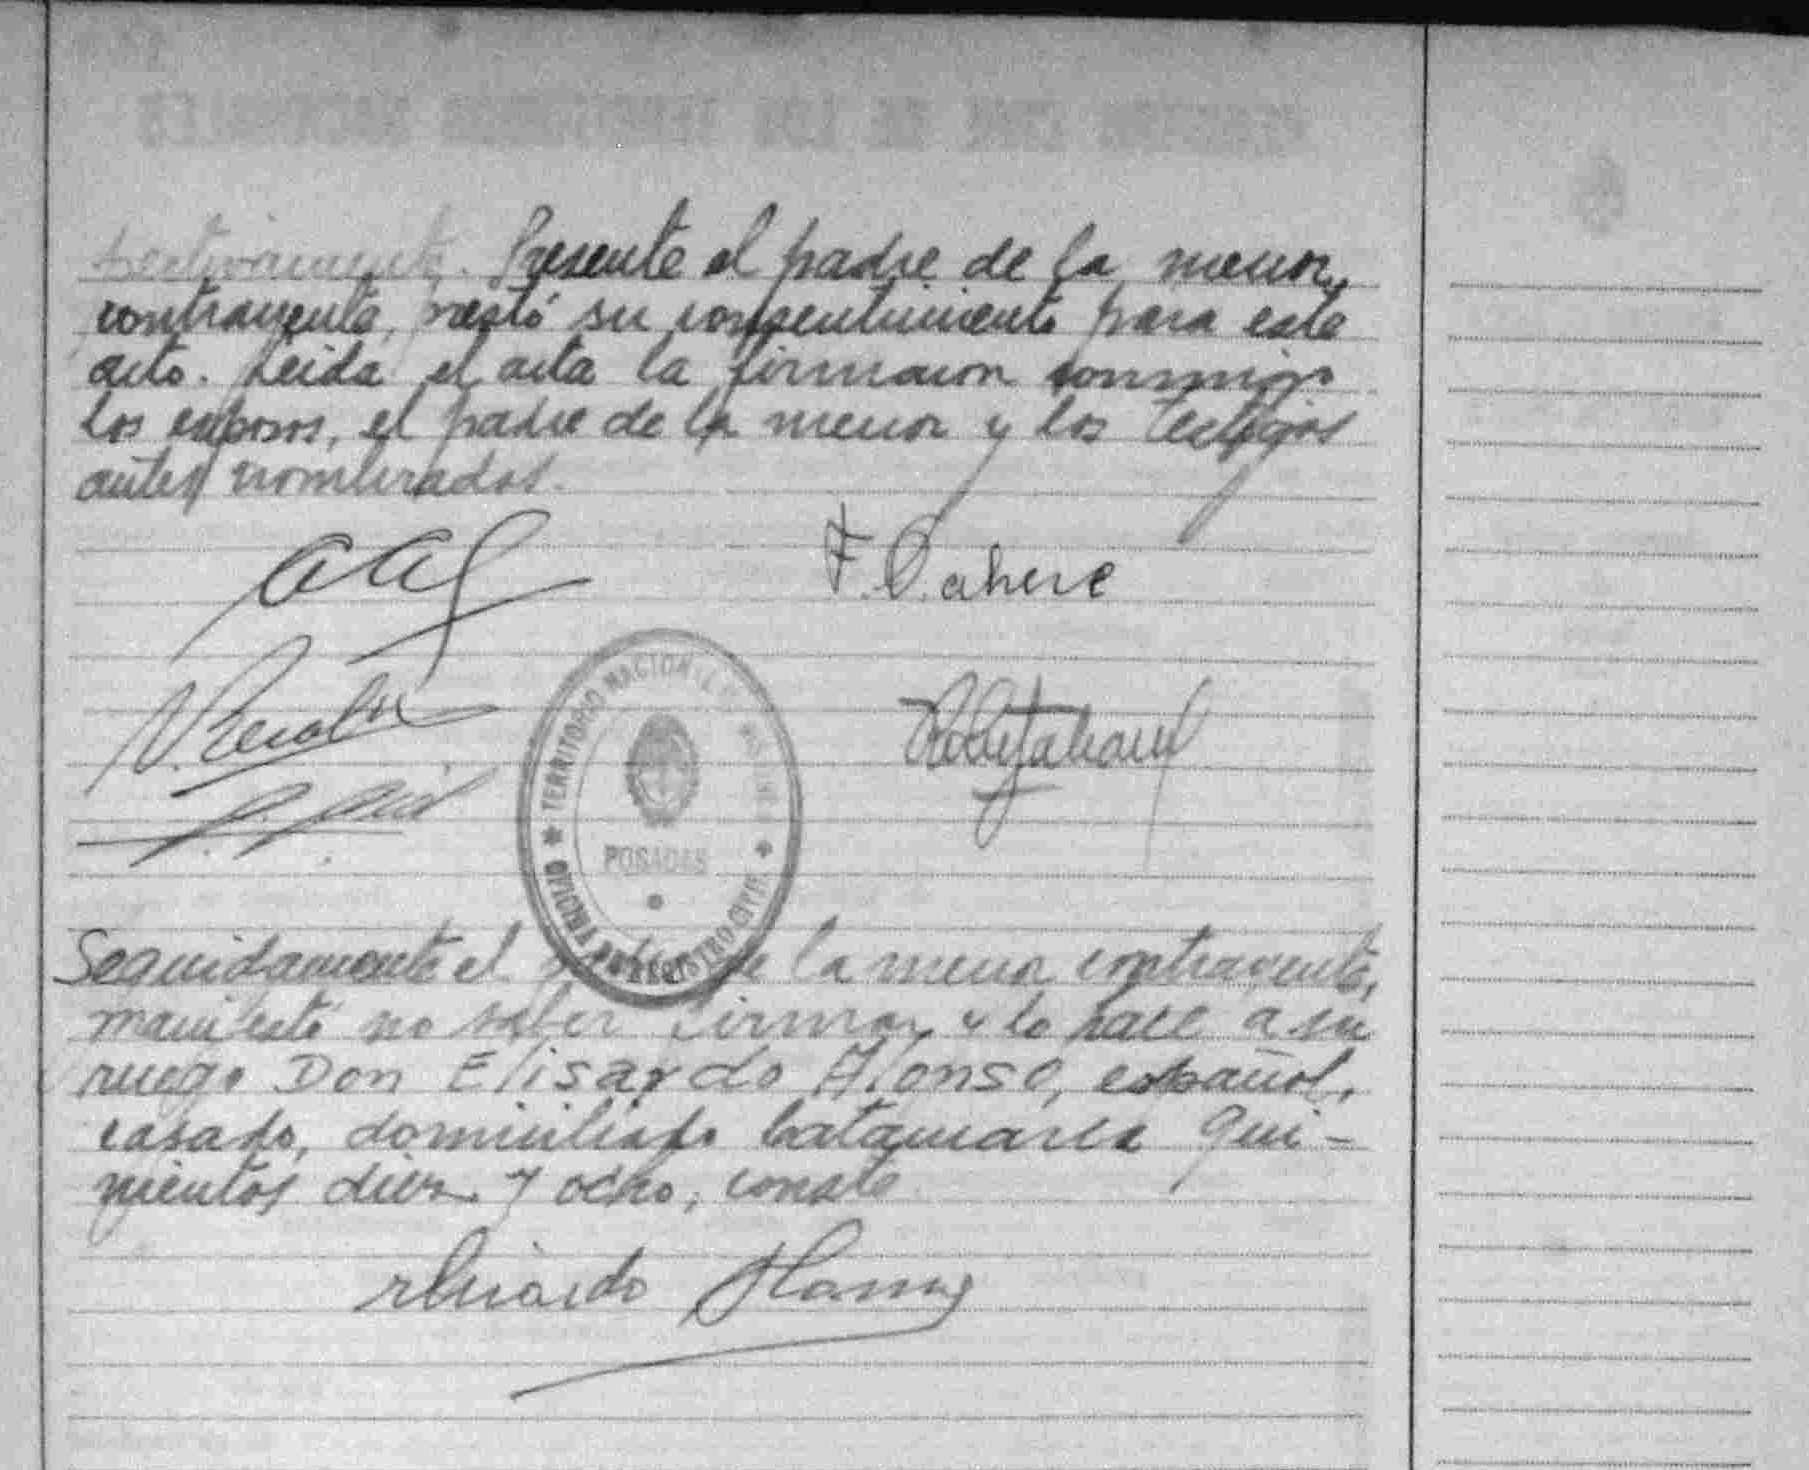 pectivamente. Presente el padre de la menor,
contrayente, prestó su consentimiento para este
acto. Leida el acta la firmaron conmigo
los esposos, el padre de la menor y los testigos
antes nombrados.
TERRITORIO NACIONAL DE MISIONES
POSADAS
OFICINA DE REGISTRO CIVIL
Seguidamente el padre de la menor contrayente,
manifestó no saber firmar y lo hace a su
ruego Don Elisardo Alonso, español,
casado, domiciliado Catamarca qui-
nientos diez y ocho, conste